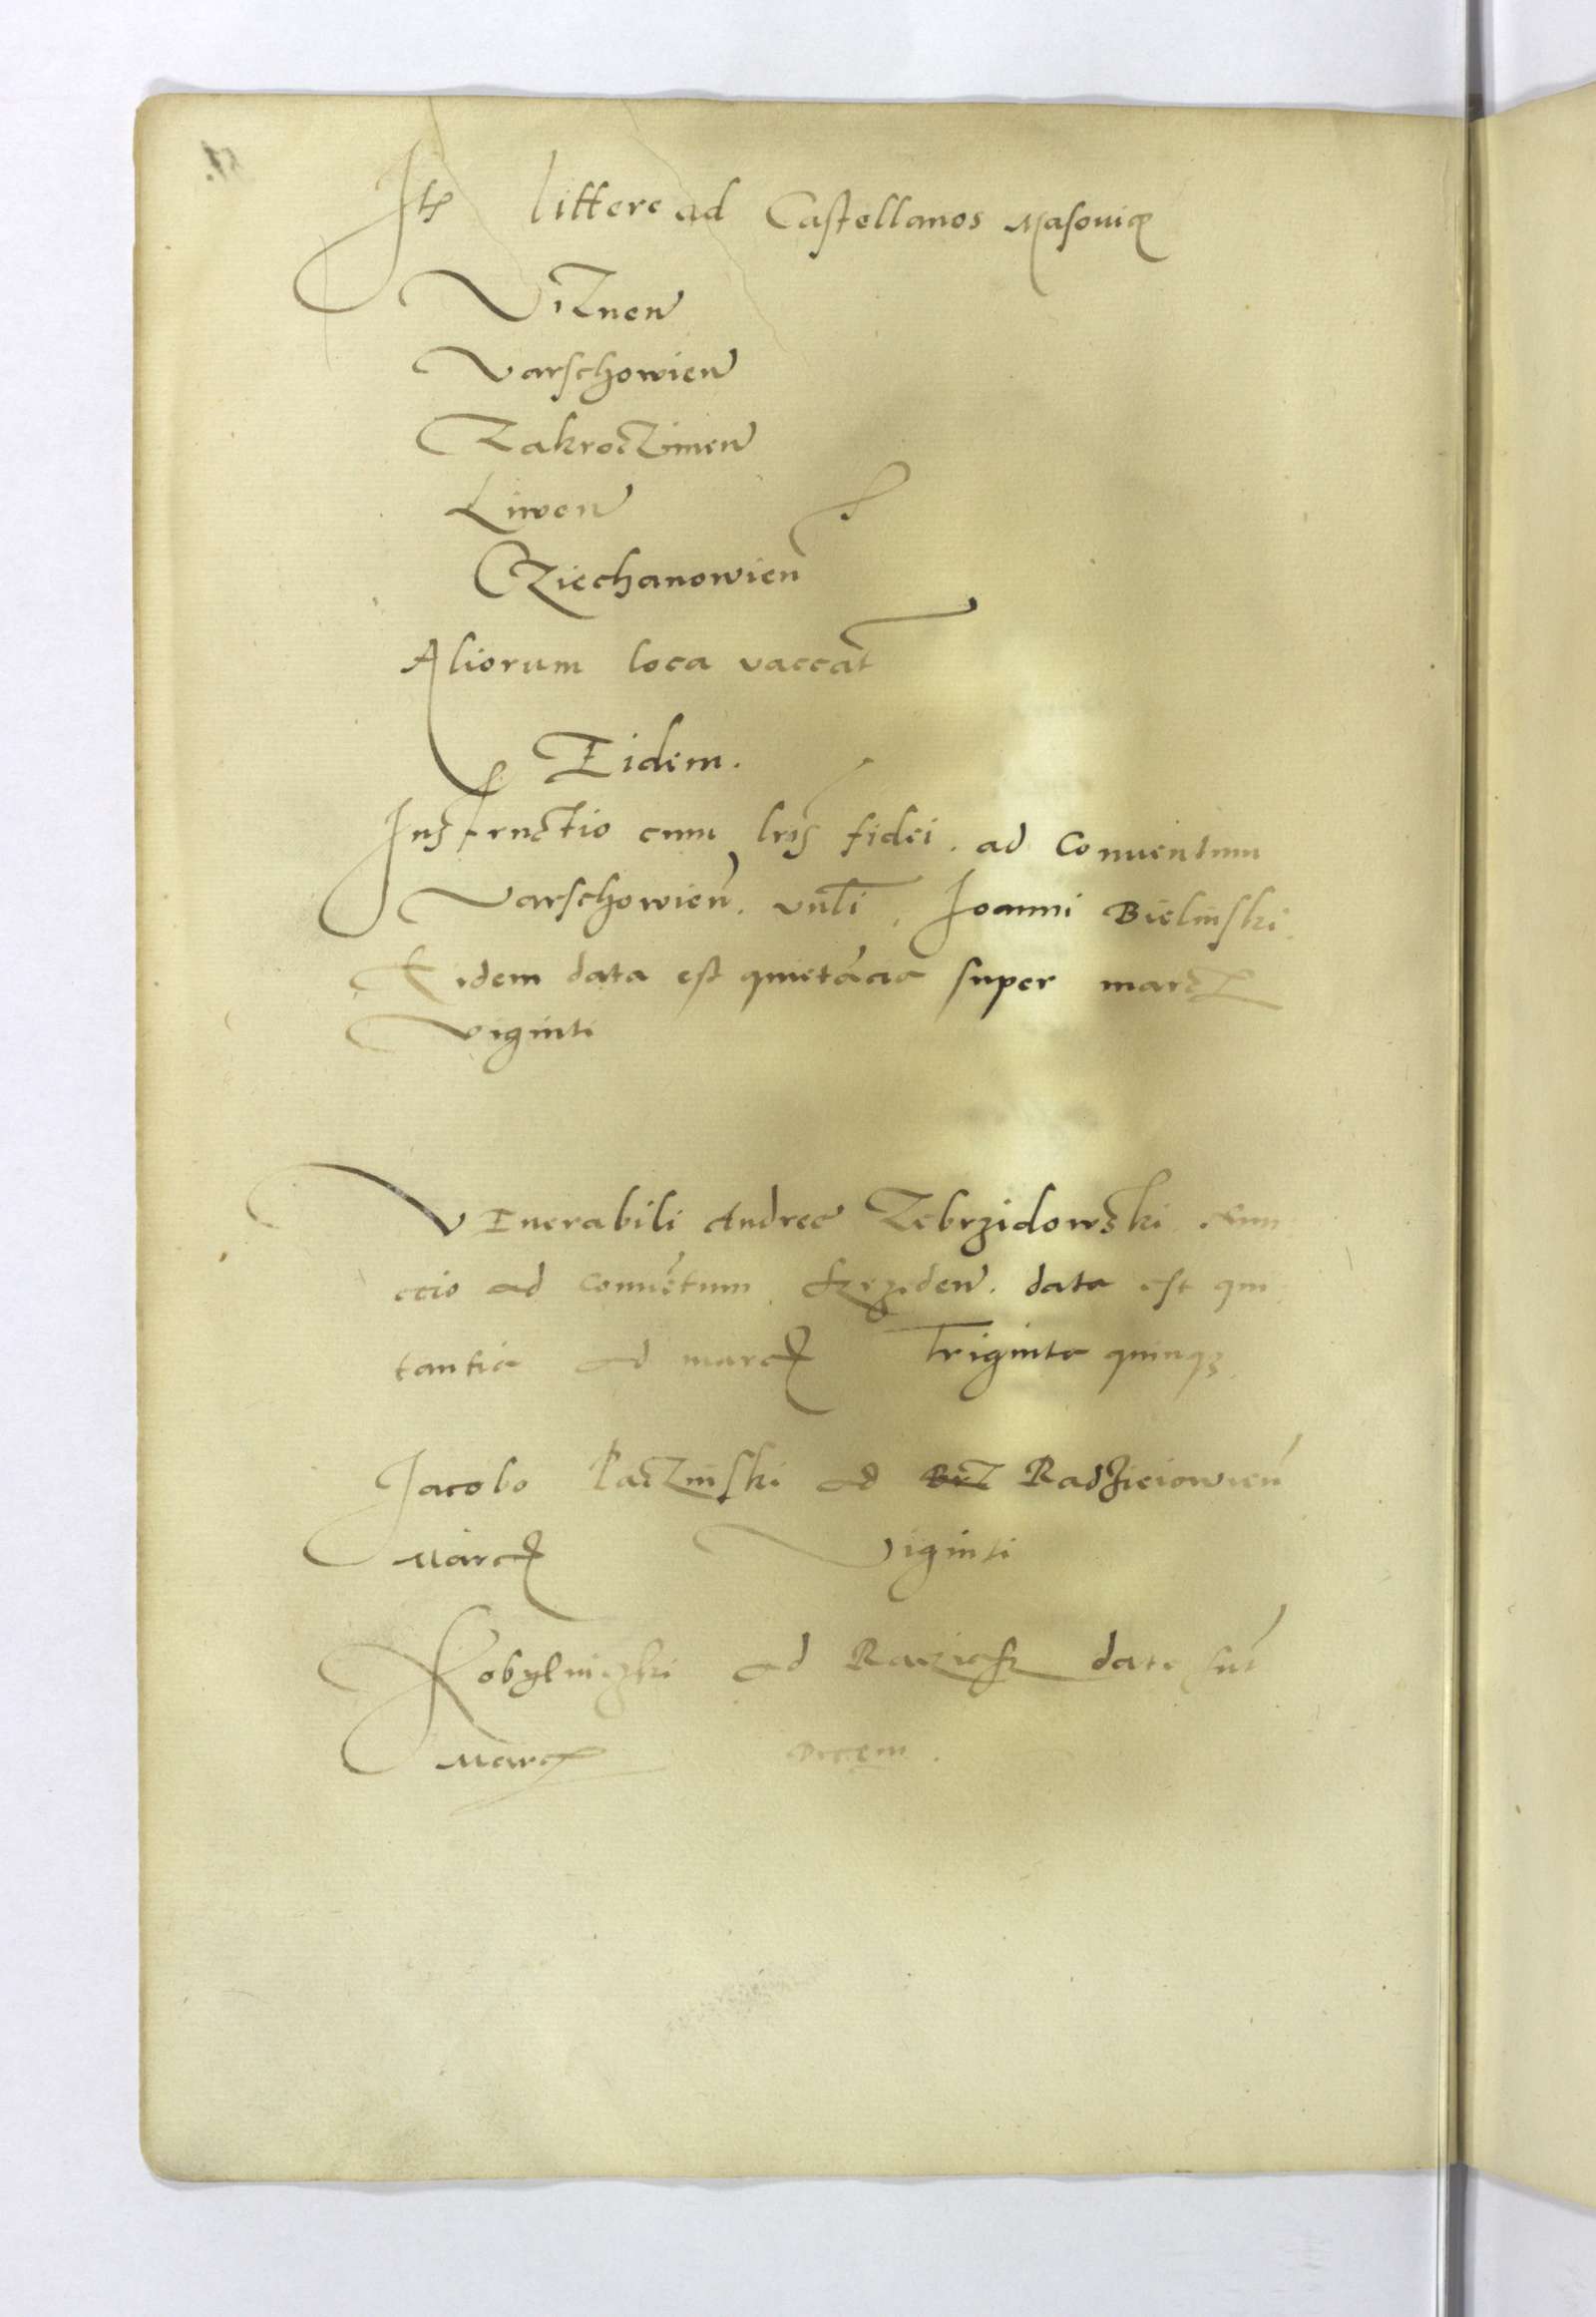 Itē littere ad Castellanos Masovie
Viznen
Varschowien
Zakroczimen
Liwen
Cziechanowien
Aliorum loca vaccāt
Eidem.
Instructio cum lris fidei. ad Conuentum
Varschowien. Vnli, Joanni Bielinski.
Eidem data est quietācia super marc
viginti
VEnerabili Andree Zebrzidowski Nun
ccio ad conuētum data est qui
tantia ad marc Triginta quinq3
Jacobo ad Radzieiowien
Marc Viginti
ad date sūt
Marc Decem.